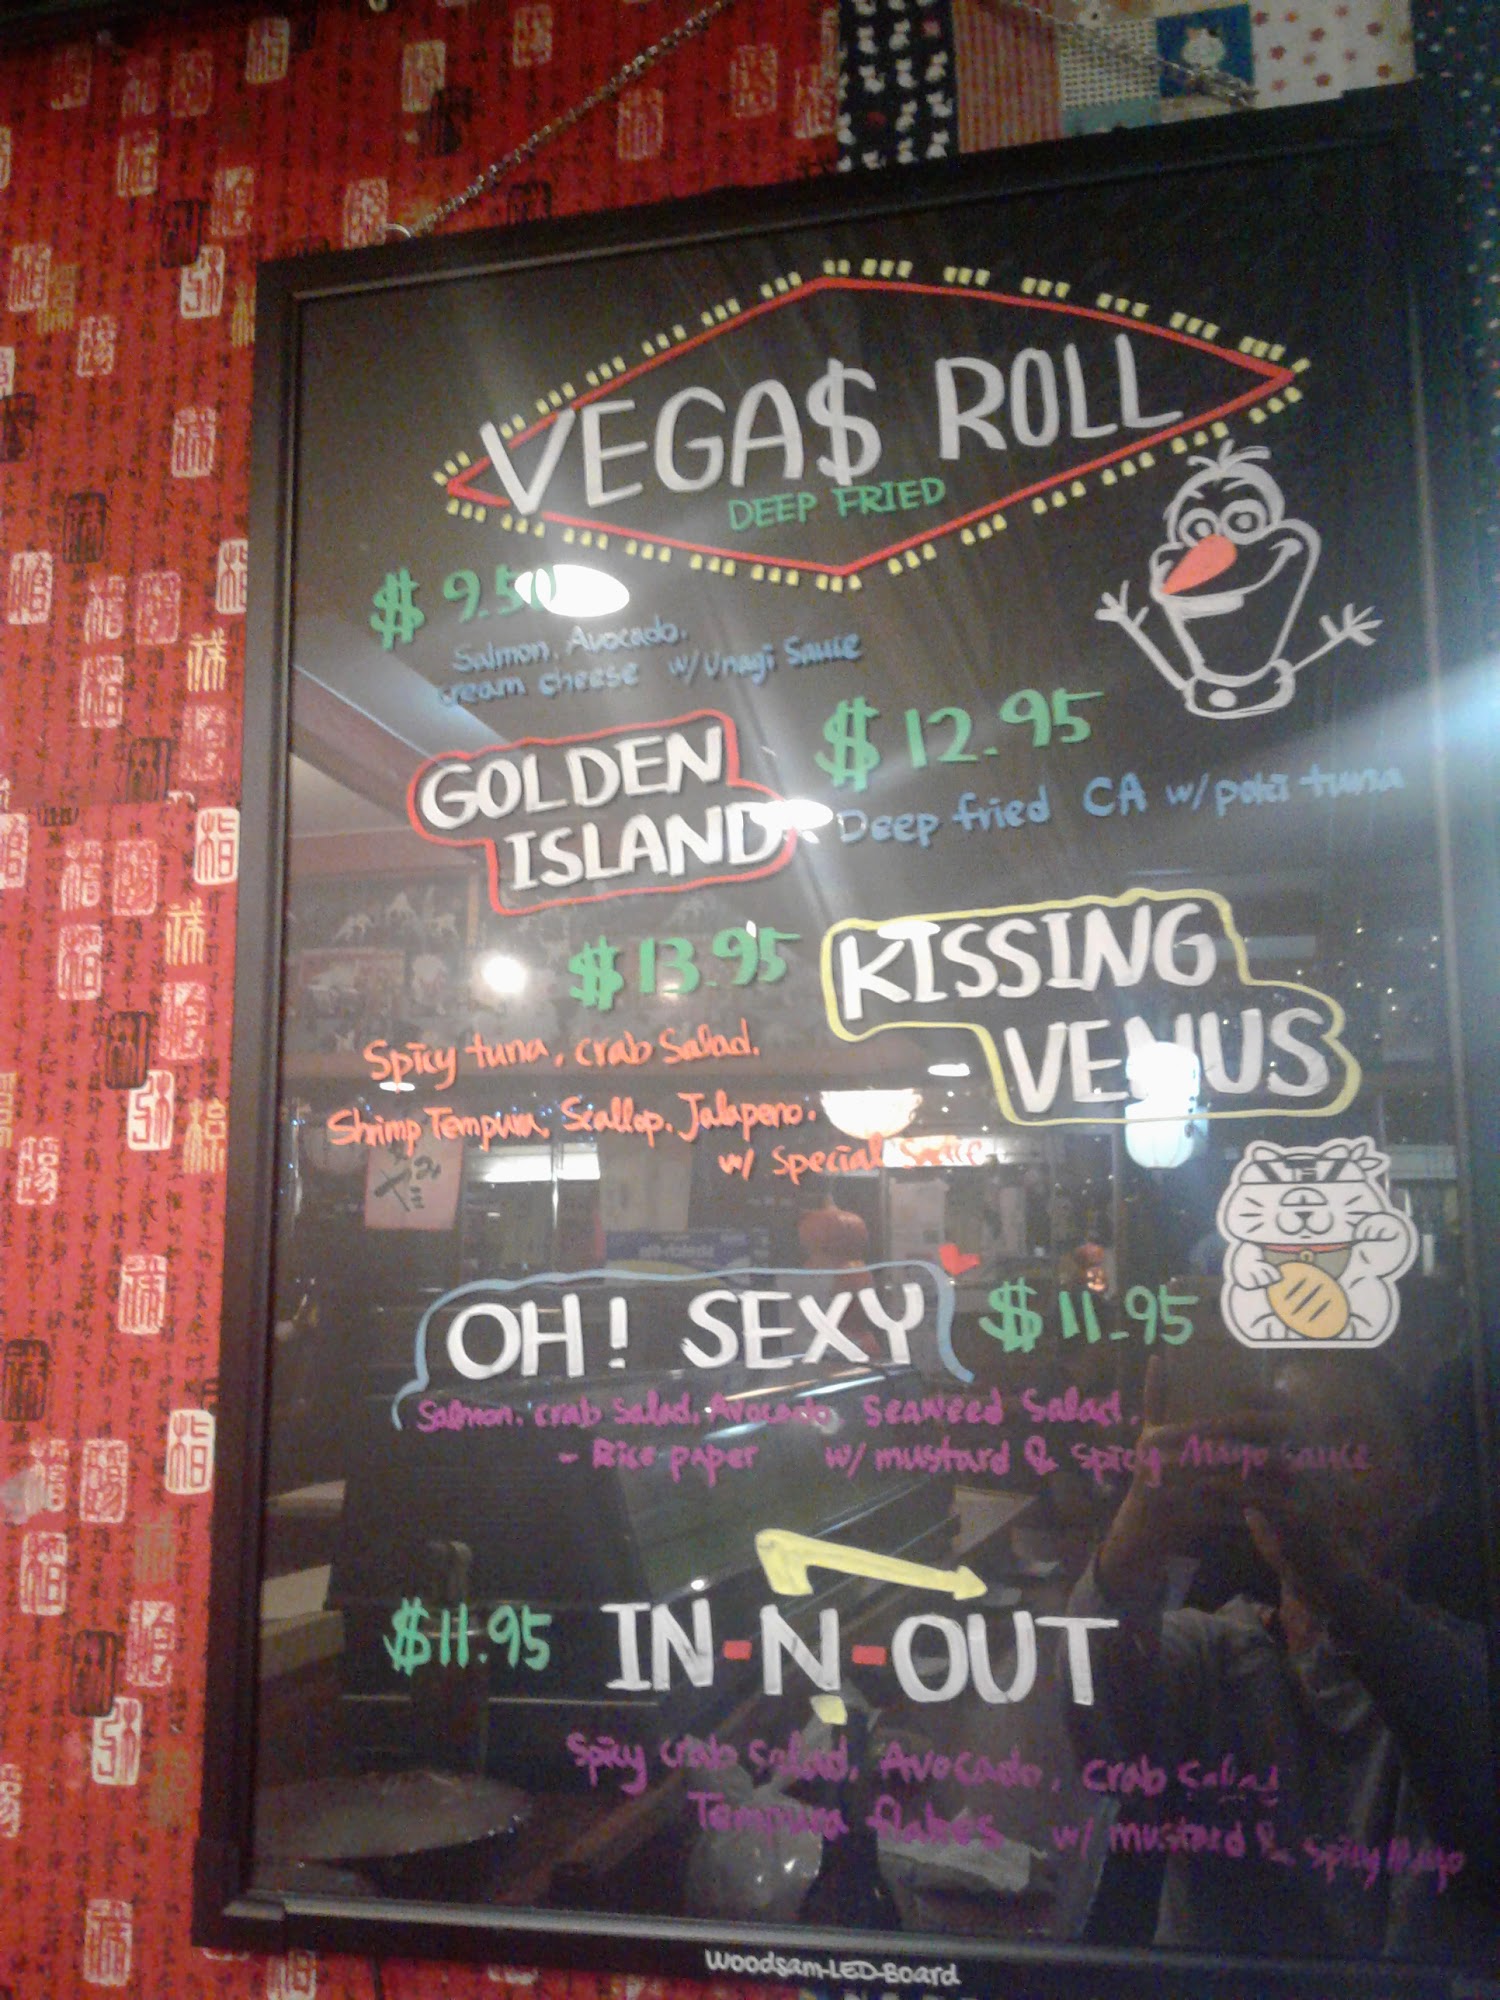 VEGA$ ROLL
DEEP FRIED
$ 9.50
Salmon, Avocado,
cream cheese w/ Unagi Sauce
GOLDEN
ISLAND
$ 12.95
Deep fried CA w/ poki tuna
$ 13.95
KISSING
VENUS
Spicy tuna, crab Salad.
Shrimp Tempura, Scallop, Jalapeno.
w/ Special Sauce
OH! SEXY
$ 11.95
Salmon, crab Salad, Avocado, Seaweed Salad,
- Rice paper w/ mustard & spicy Mayo sauce
$11.95
IN-N-OUT
Spicy crab Salad, Avocado, crab Salad
Tempura flakes w/ mustard & spicy Mayo
Woodsam-LED-Board